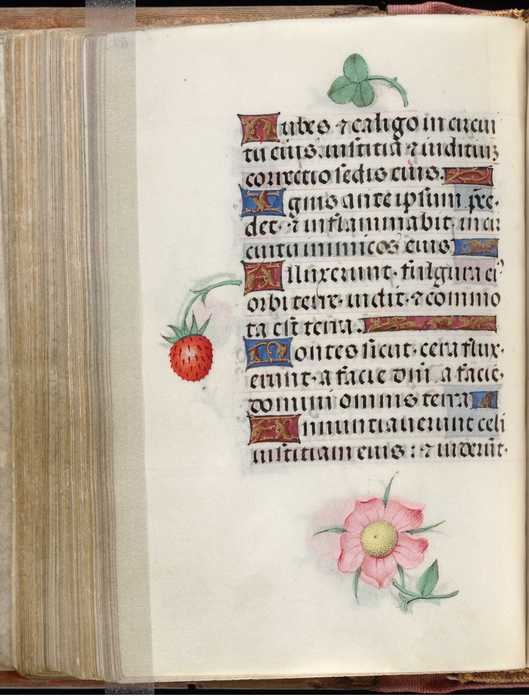 Nubes ⁊ caligo in circui
tu eius. iustitia ⁊ iudiciu͂
correctio sedis eius.
Ignis ante ipsum p̄re
det. ⁊ inflammabit in cir
cuitu inimicos eius
Alluxerunt fulgura ei'
orbi terre. uidit. ⁊ commo
ta est terra.
Montes sicut. cera flux
erunt. a facie dn̄i. a facie.
domini omnis terra
Annuntiauerunt celi
iustitiam eius : ⁊ uiderūt.